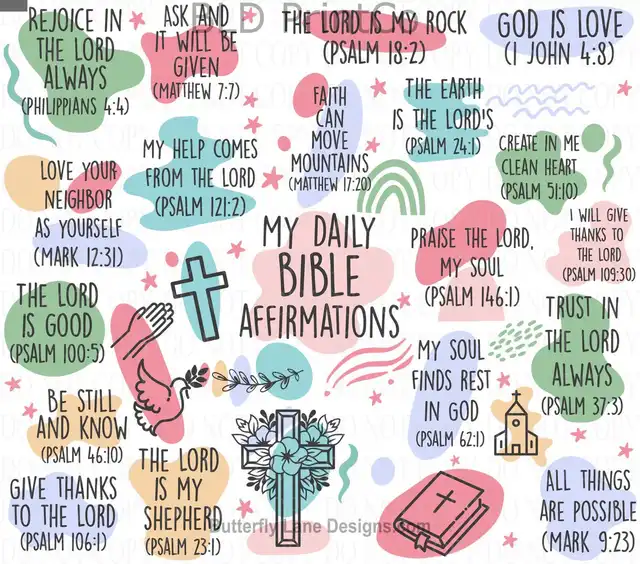 REJOICE IN
THE LORD
ALWAYS
(PHILIPPIANS 4:4)
ASK AND
IT WILL BE
GIVEN
(MATTHEW 7:7)
THE LORD IS MY ROCK
(PSALM 18:2)
GOD IS LOVE
(1 JOHN 4:8)
FAITH
CAN
MOVE
MOUNTAINS
(MATTHEW 17:20)
THE EARTH
IS THE LORD'S
(PSALM 24:1)
CREATE IN ME
CLEAN HEART
(PSALM 51:10)
LOVE YOUR
NEIGHBOR
AS YOURSELF
(MARK 12:31)
MY HELP COMES
FROM THE LORD
(PSALM 121:2)
MY DAILY
BIBLE
AFFIRMATIONS
PRAISE THE LORD,
MY SOUL
(PSALM 146:1)
I WILL GIVE
THANKS TO
THE LORD
(PSALM 109:30)
THE LORD
IS GOOD
(PSALM 100:5)
MY SOUL
FINDS REST
IN GOD
(PSALM 62:1)
TRUST IN
THE LORD
ALWAYS
(PSALM 37:3)
BE STILL
AND KNOW
(PSALM 46:10)
GIVE THANKS
TO THE LORD
(PSALM 106:1)
THE LORD
IS MY
SHEPHERD
(PSALM 23:1)
ALL THINGS
ARE POSSIBLE
(MARK 9:23)
Butterfly Lane Designs.com